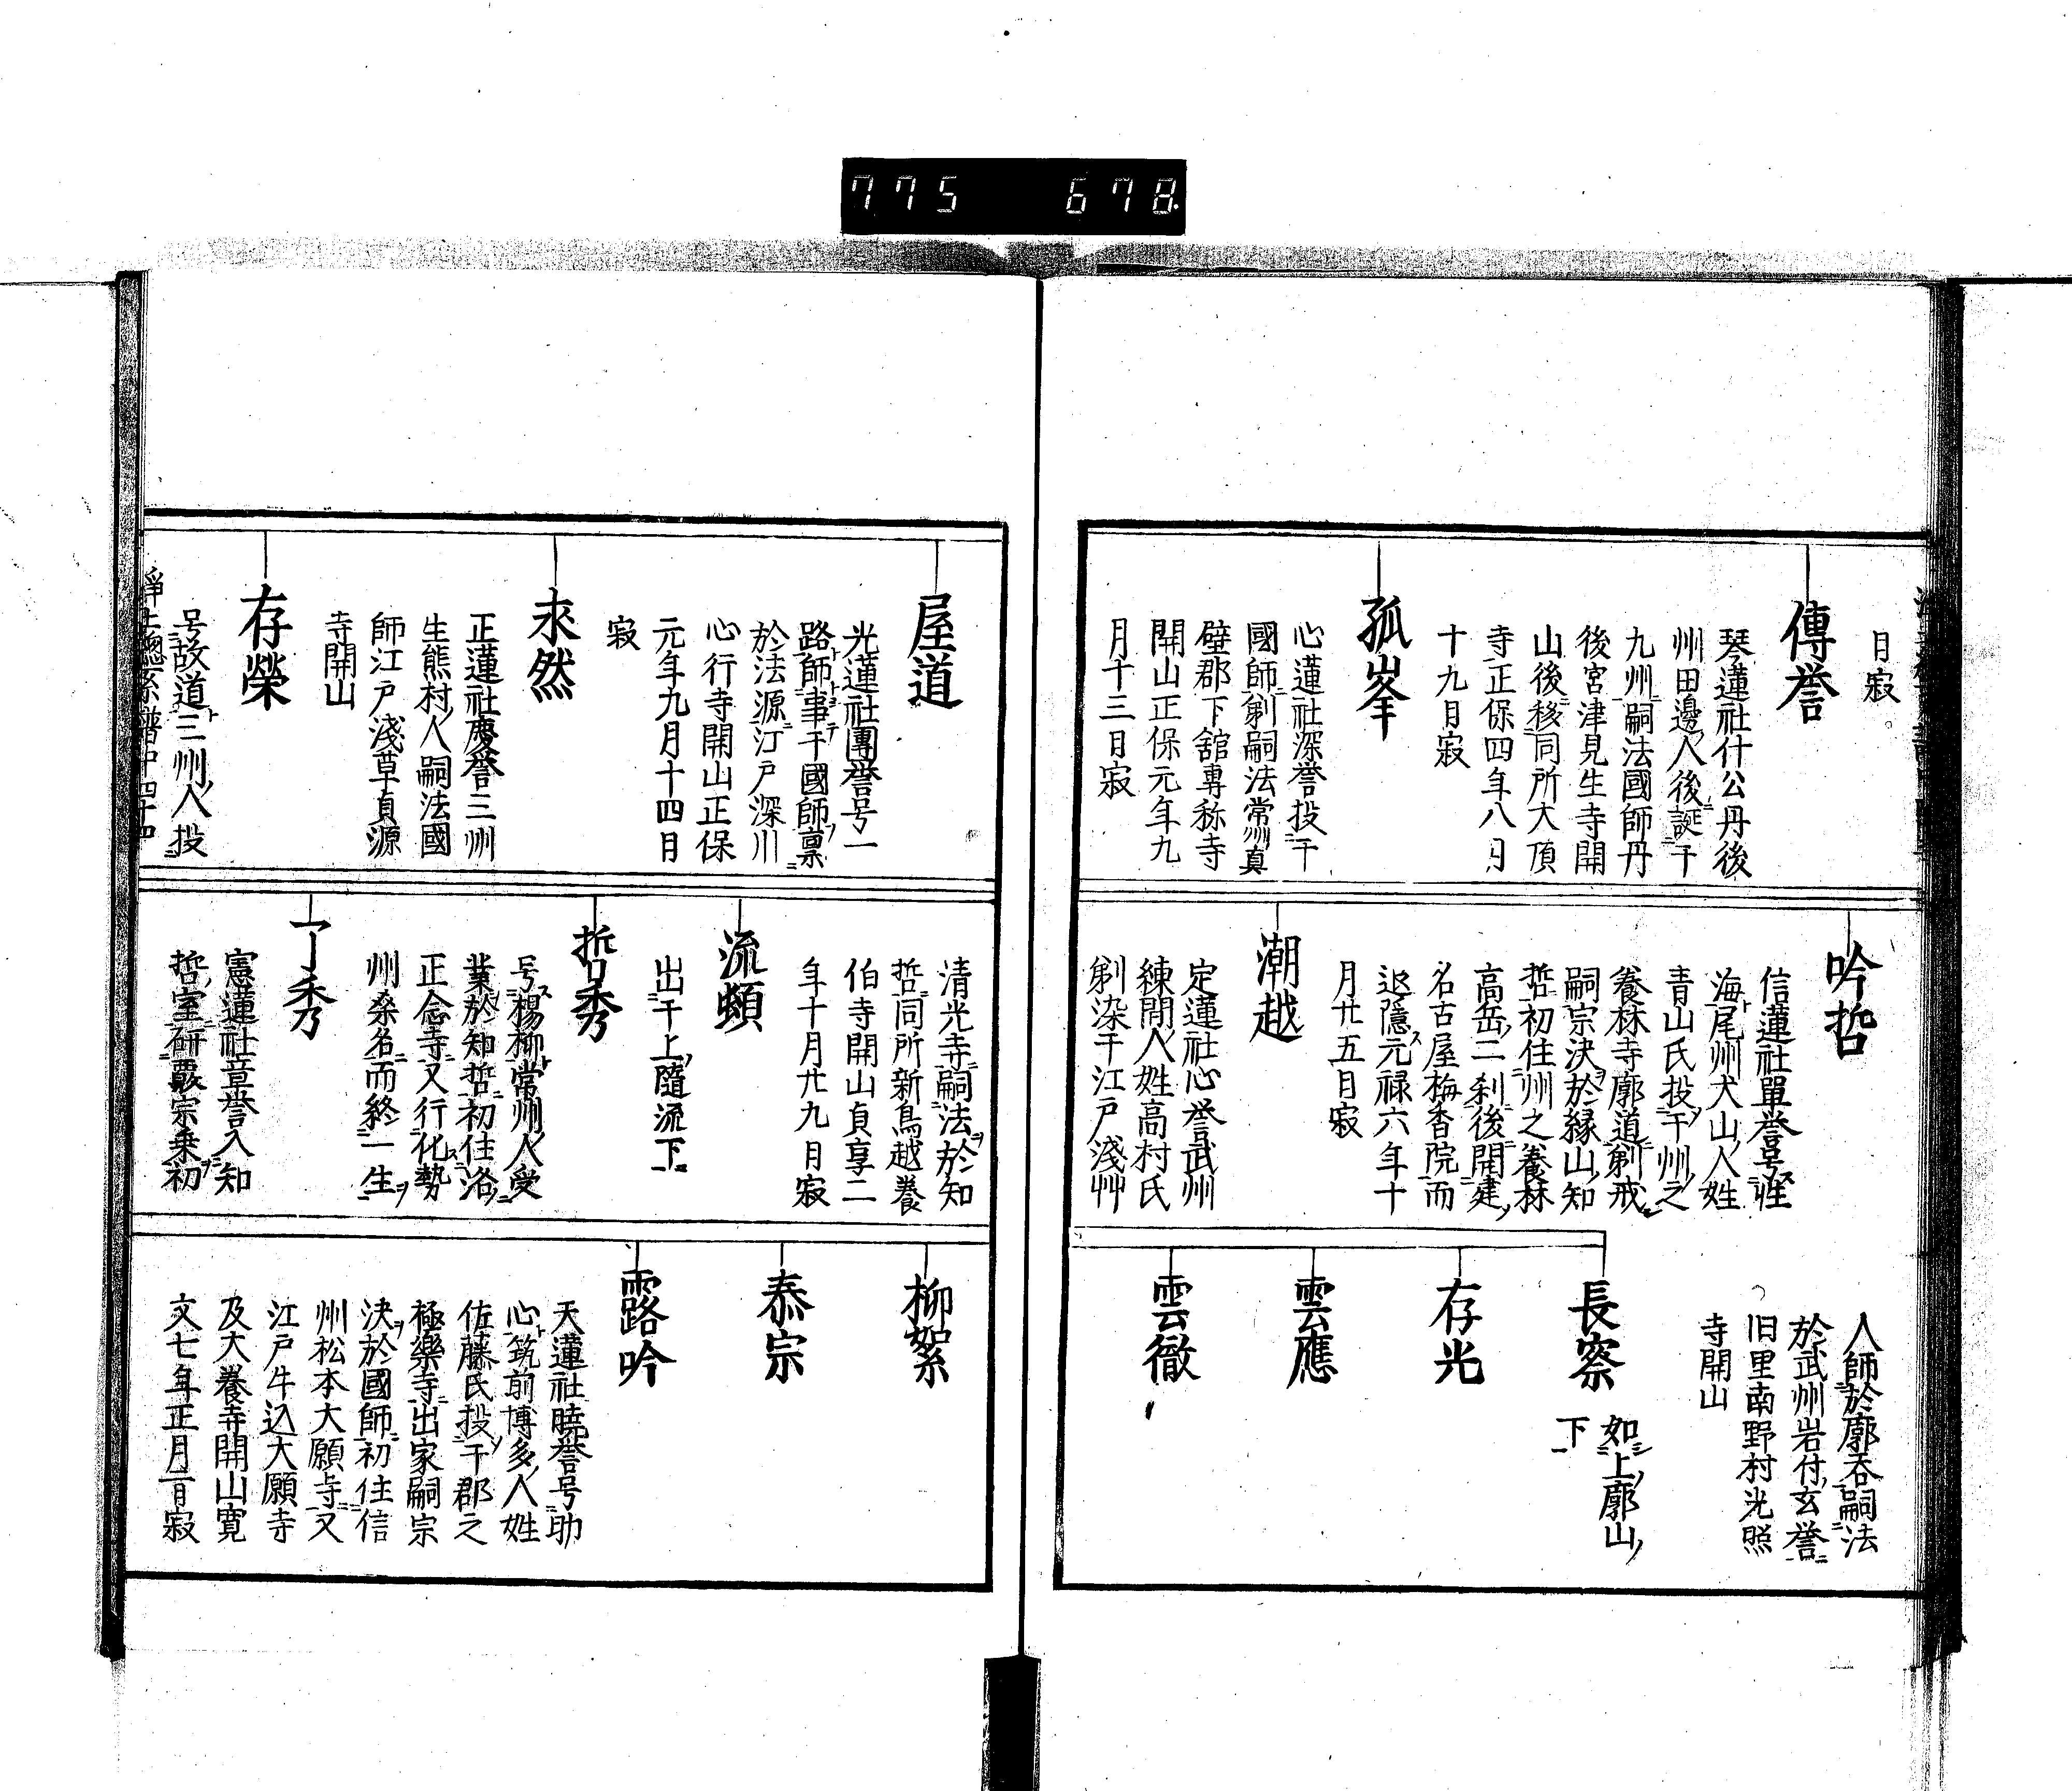 775 678
月寂
傳誉
琴蓮社什公丹後
州田邊人後誕于
九州嗣法國師丹
後宮津見生寺開
山後移同所大頂
寺正保四年八月
十九日寂
孤峯
心蓮社深誉投于
國師剃嗣法常州真
壁郡下舘專称寺
開山正保元年九
月十三日寂
吟哲
信蓮社單誉号
海尾州犬山人姓
青山氏投于州之
養林寺廓道剃戒
嗣宗決於縁山知
哲初住州之養林
高岳二刹後開建
名古屋梅香院而
退隠元禄六年十
月廿五日寂
潮越
定蓮社心誉武州
練間人姓高村氏
剃染于江戸淺艸
人師於廓呑嗣法
於武州岩付玄誉
旧里南野村光照
寺開山
長察
如上廓山
下
存光
雲應
雲徹
屋道
光蓮社團誉号一
路師事于國師稟
於法源江戸深川
心行寺開山正保
元年九月十四日
寂
求然
正蓮社慶誉三州
生熊村人嗣法國
師江戸淺草貞源
寺開山
存榮
号故道三州人投
淨土總系譜中 四十四
清光寺嗣法於知
哲同所新鳥越養
伯寺開山貞享二
年十月廿九日寂
流頓
出于上隨流下
哲秀
号楊柳常州人受
業於知哲初住洛
正念寺又行化勢
州桑名而終一生
了秀
憲蓮社章誉入知
哲室研覈宗乗初
柳絮
泰宗
露吟
天蓮社暁誉号助
心筑前博多人姓
佐藤氏投于郡之
極樂寺出家嗣宗
決於國師初住信
州松本大願寺又
江戸牛込大願寺
及大養寺開山寛
文七年正月二日寂